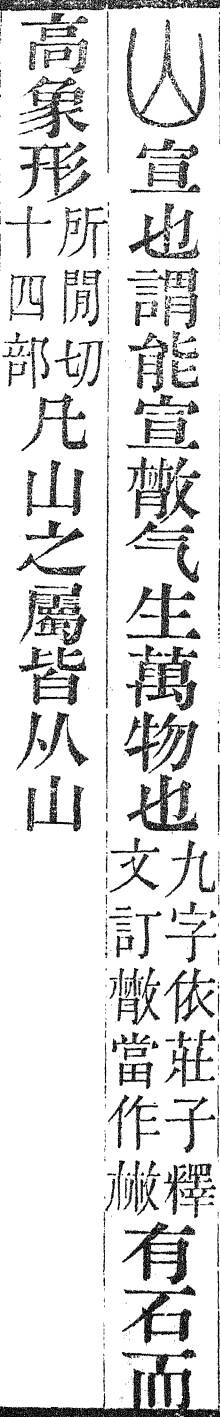 山宣也謂能宣㪔气生萬物也九字依莊子釋文訂㪔當作㪔有石而
高象形所閒切十四部凡山之屬皆从山